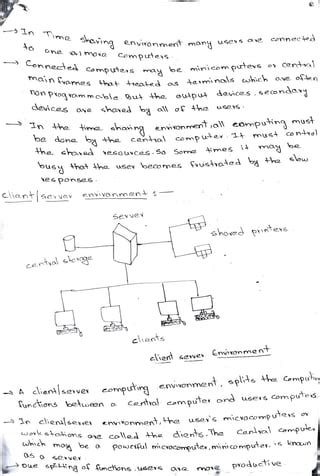 → In Time sharing environment many users are connected
to one or more computers.
→ Connected computers may be minicomputers or central
mainframes that treated as terminals which are often
nonprogrammable. But the output devices, secondary
devices are shared by all of the users.
→ In the time sharing environment, all computing must
be done by the central computer. It must control
the shared resources. So some times it may be
busy that the user becomes frustrated by the slow
responses.
Client/server environment :—
server
shared printers
central storage
clients
client server Environment
→ A client/server computing environment, splits the computing
functions between a central computer and users computers.
→ In client/server environment, the user's microcomputers or
workstations are called the clients. The central computer
which may be a powerful microcomputer, minicomputer, is known
as a server
→ Due splitting of functions, users are more productive